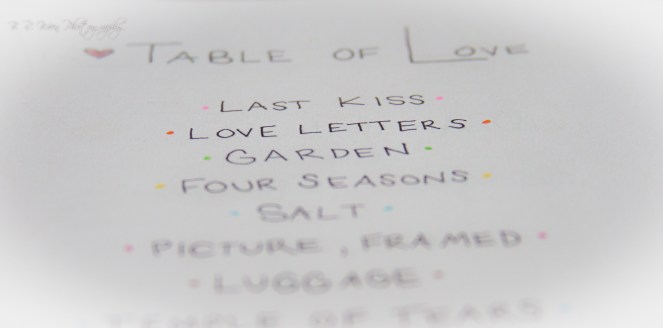 Table of Love
Last Kiss
Love Letters
Garden
Four Seasons
Salt
Picture, Framed
Luggage
Temple of Tears